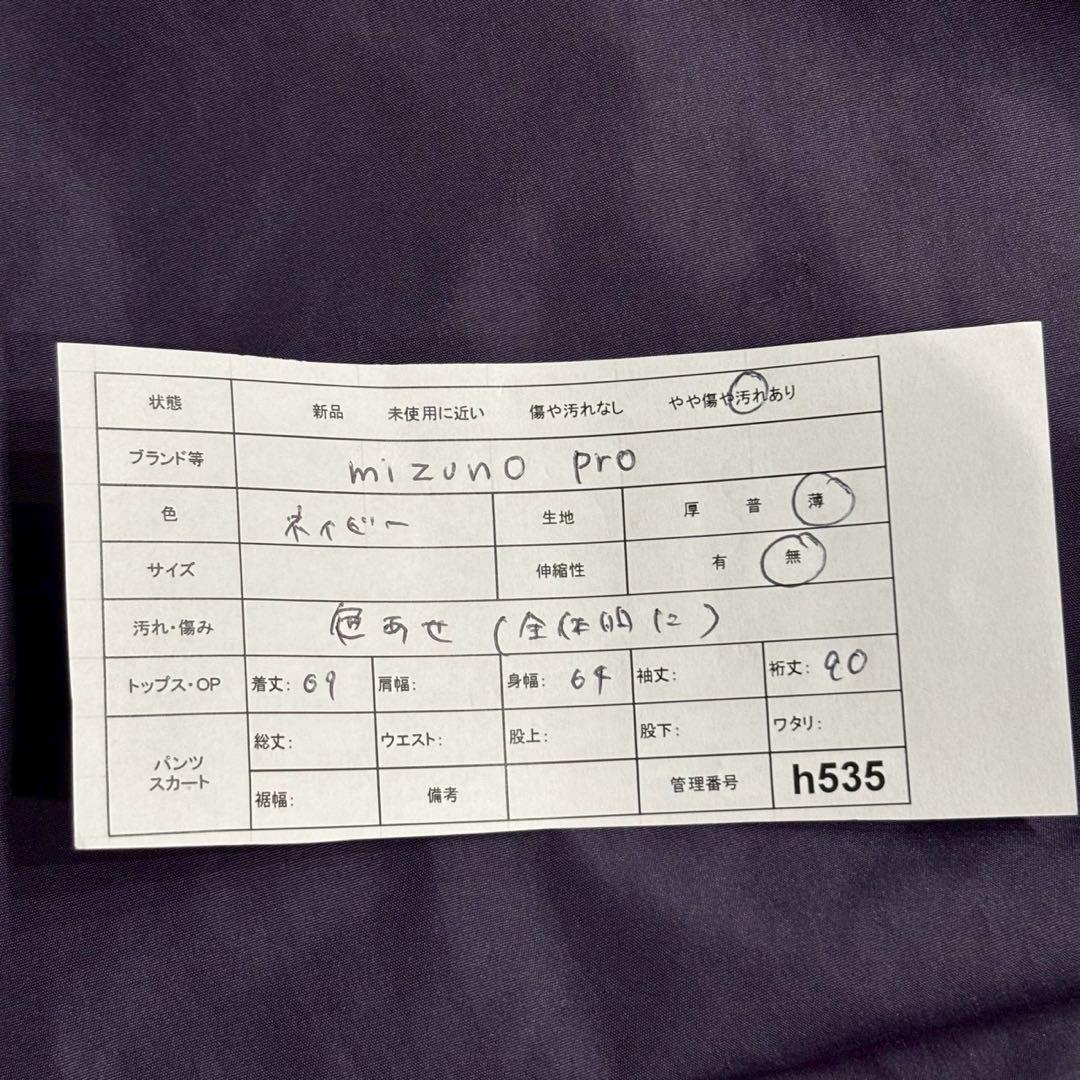 状態 新品 未使用に近い 傷や汚れなし やや傷や汚れあり
ブランド等 mizuno pro
色 ネイビー 生地 厚 普 薄
サイズ 伸縮性 有 無
汚れ・傷み 色あせ(全体的に)
トップス・OP 着丈: 69 肩幅: 身幅: 64 袖丈: 裄丈: 90
パンツ スカート 総丈: ウエスト: 股上: 股下: ワタリ:
裾幅: 備考 管理番号 h535